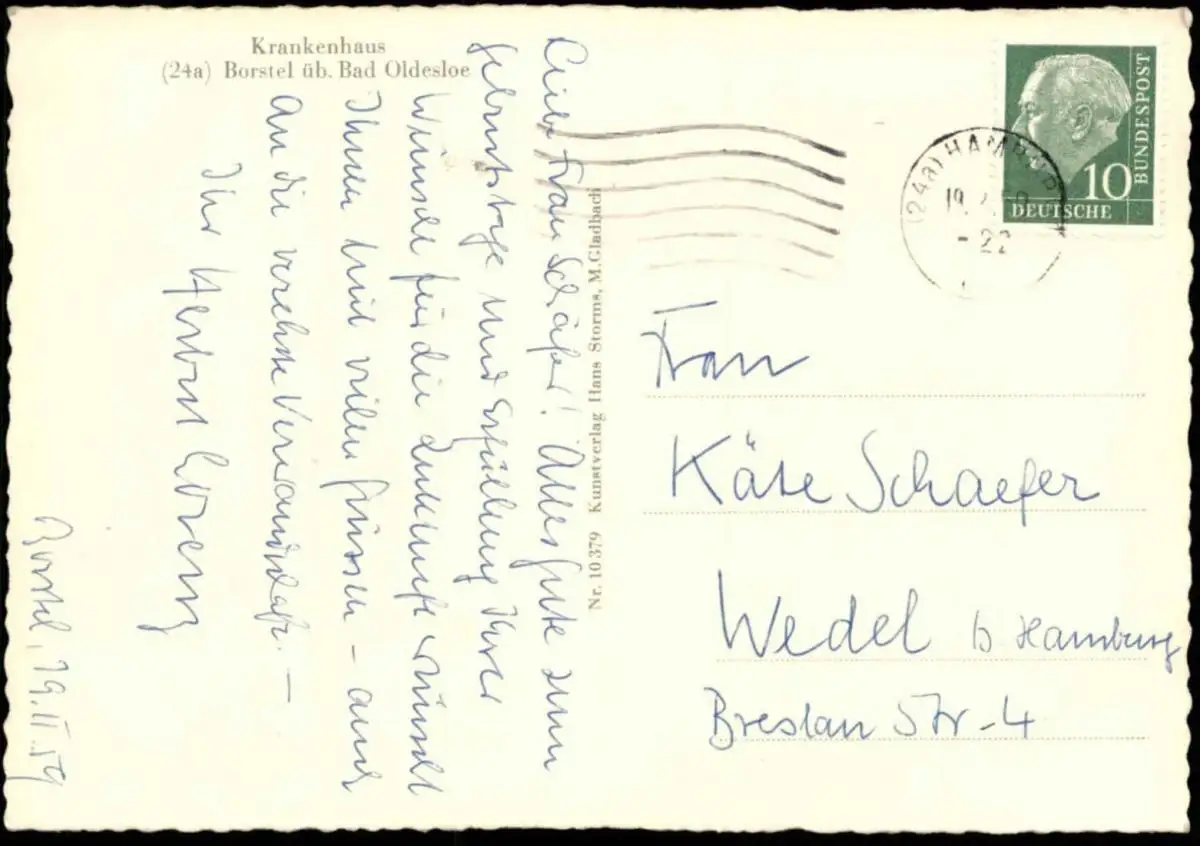 Krankenhaus
(24a) Borstel üb. Bad Oldesloe
Liebe Frau Schäfer! Alles Gute zum
Geburtstage und Erfüllung Ihrer
Wünsche für die Zukunft wünscht
Ihnen mit vielen Grüssen – auch
an die verehrte Verwandtschaft. –
Ihr Herbert Lorenz
Borstel, 19.II.59
Nr. 10379 Kunstverlag Hans Storms, M.Gladbach
BUNDESPOST
10
DEUTSCHE
(24a) HAMBUR
19.
-22
Frau
Käte Schaefer
Wedel b Hamburg
Breslau Str-4